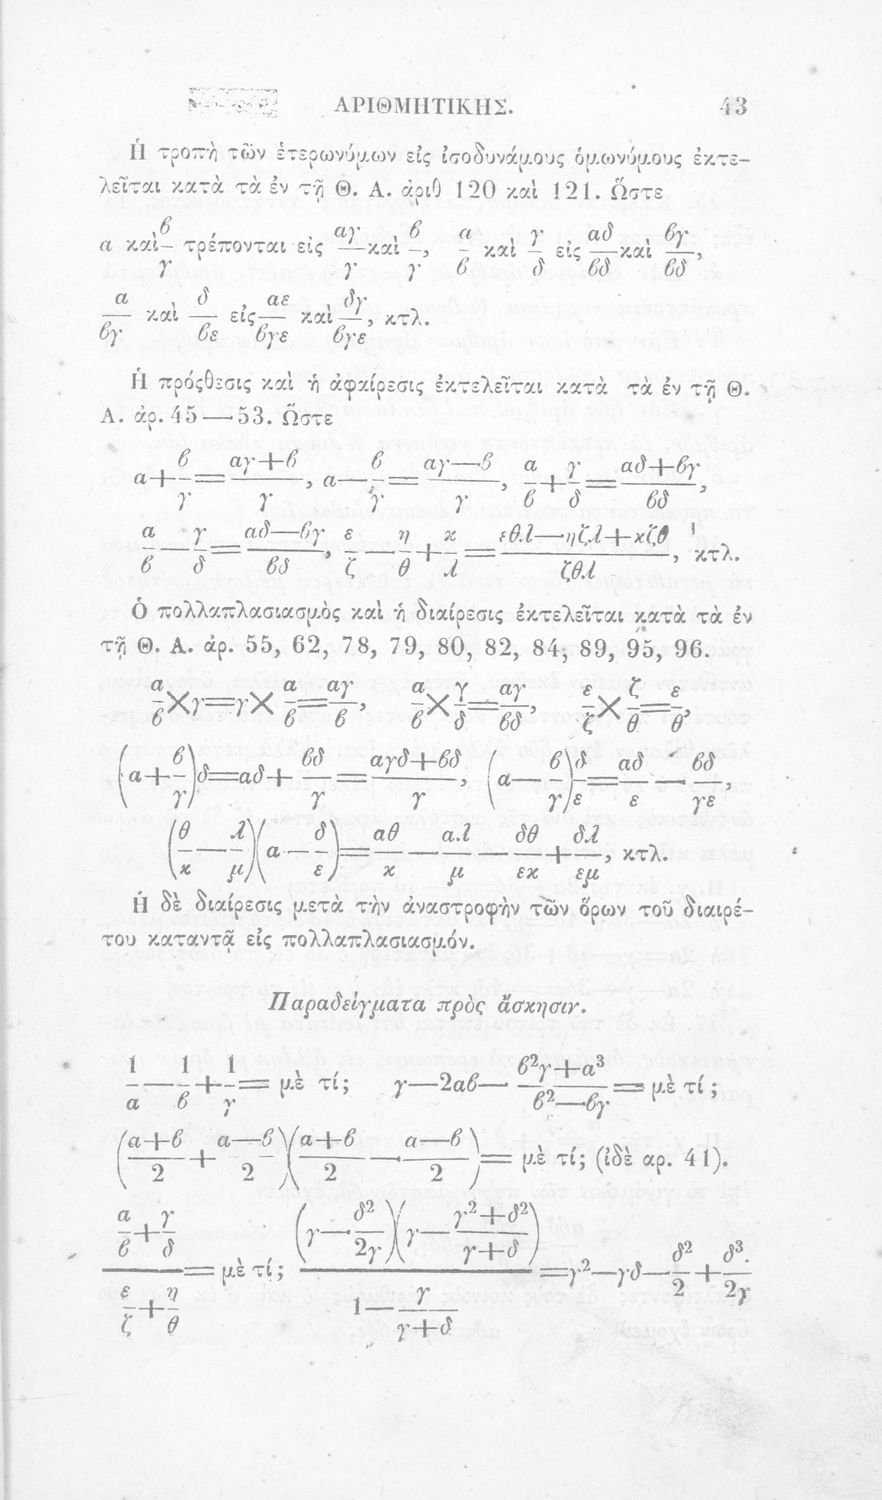 ΑΡΙΘΜΗΤΙΚΗΣ. 43
Ἡ τροπὴ τῶν ἑτερωνύμων εἰς ἰσοδυνάμους ὁμωνύμους ἐκτε-
λεῖται κατὰ τὰ ἐν τῇ Θ. Α. ἀριθ 120 καὶ 121. Ὥστε
α καὶ β/γ τρέπονται εἰς αγ/γ καὶ β/γ, α/β καὶ γ/δ εἰς αδ/βδ καὶ βγ/βδ,
α/βγ καὶ δ/βε εἰς αε/βγε καὶ δγ/βγε, κτλ.
Ἡ πρόσθεσις καὶ ἡ ἀφαίρεσις ἐκτελεῖται κατὰ τὰ ἐν τῇ Θ.
Α. ἀρ. 45—53. Ὥστε
α+β/γ=(αγ+β)/γ, α—β/γ=(αγ—β)/γ, α/β+γ/δ=(αδ+βγ)/βδ,
α/β—γ/δ=(αδ—βγ)/βδ, ε/ζ—η/θ+κ/λ=(εθλ—ηζλ+κζθ)/ζθλ, κτλ.
Ὁ πολλαπλασιασμὸς καὶ ἡ διαίρεσις ἐκτελεῖται κατὰ τὰ ἐν
τῇ Θ. Α. ἀρ. 55, 62, 78, 79, 80, 82, 84, 89, 95, 96.
α/β×γ=γ×α/β=αγ/β, α/β×γ/δ=αγ/βδ, ε/ζ×ζ/θ=ε/θ,
(α+β/γ)δ=αδ+βδ/γ=(αγδ+βδ)/γ, (α—β/γ)δ/ε=αδ/ε—βδ/γε,
(θ/κ—λ/μ)(α—δ/ε)=αθ/κ—αλ/μ—δθ/εκ+δλ/εμ, κτλ.
Ἡ δὲ διαίρεσις μετὰ τὴν ἀναστροφὴν τῶν ὅρων τοῦ διαιρέ-
του καταντᾷ εἰς πολλαπλασιασμόν.
Παραδείγματα πρὸς ἄσκησιν.
1/α—1/β+1/γ= μὲ τί; γ—2αβ—(β²γ+α³)/(β²—βγ)= μὲ τί;
((α+β)/2+(α—β)/2)((α+β)/2—(α—β)/2)= μὲ τί; (ἰδὲ αρ. 41).
(α/β+γ/δ)/(ε/ζ+η/θ)= μὲ τί; (γ—δ²/2γ)(γ—(γ²+δ²)/(γ+δ))/(1—γ/(γ+δ))=γ²—γδ—δ²/2+δ³/2γ.